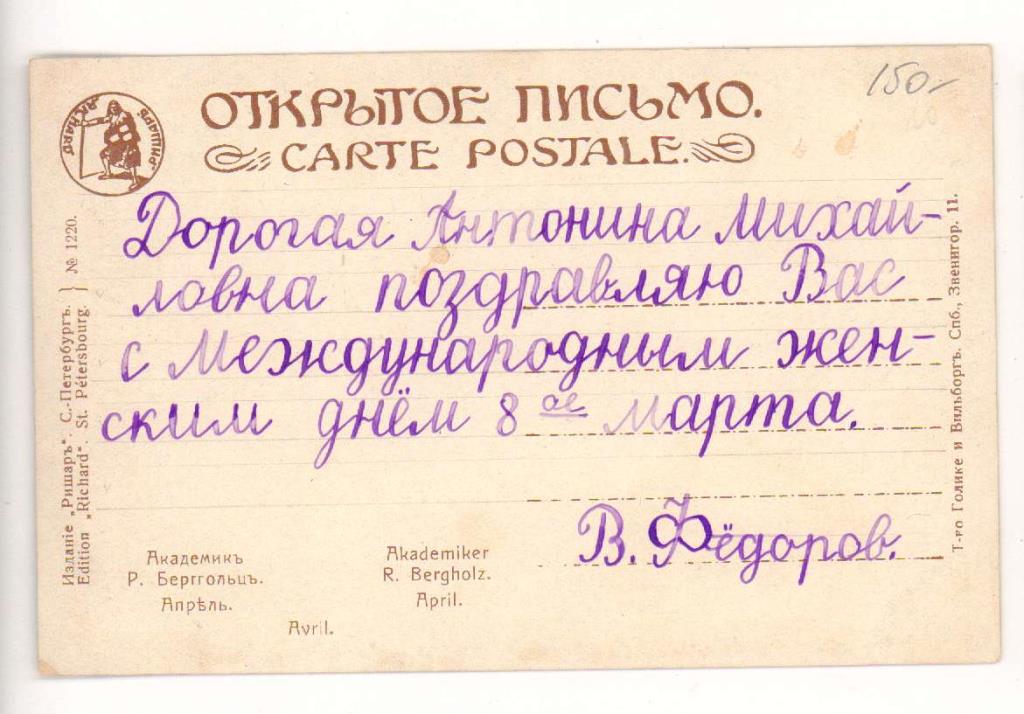 150-
ОТКРЫТОЕ ПИСЬМО.
CARTE POSTALE.
РИШАРЪ. RICHARD
Дорогая Антонина Михай-
ловна поздравляю Вас
с Международным жен-
ским днём 8 ое марта.
В. Фёдоров.
Академикъ
Р. Берггольцъ.
Апрѣль.
Akademiker
R. Bergholz.
April.
Avril.
Изданіе „Ришаръ“. С.-Петербургъ. } № 1220.
Edition „Richard“. St. Pétersbourg.
Т-во Голике и Вильборгъ. Спб., Звенигор. 11.